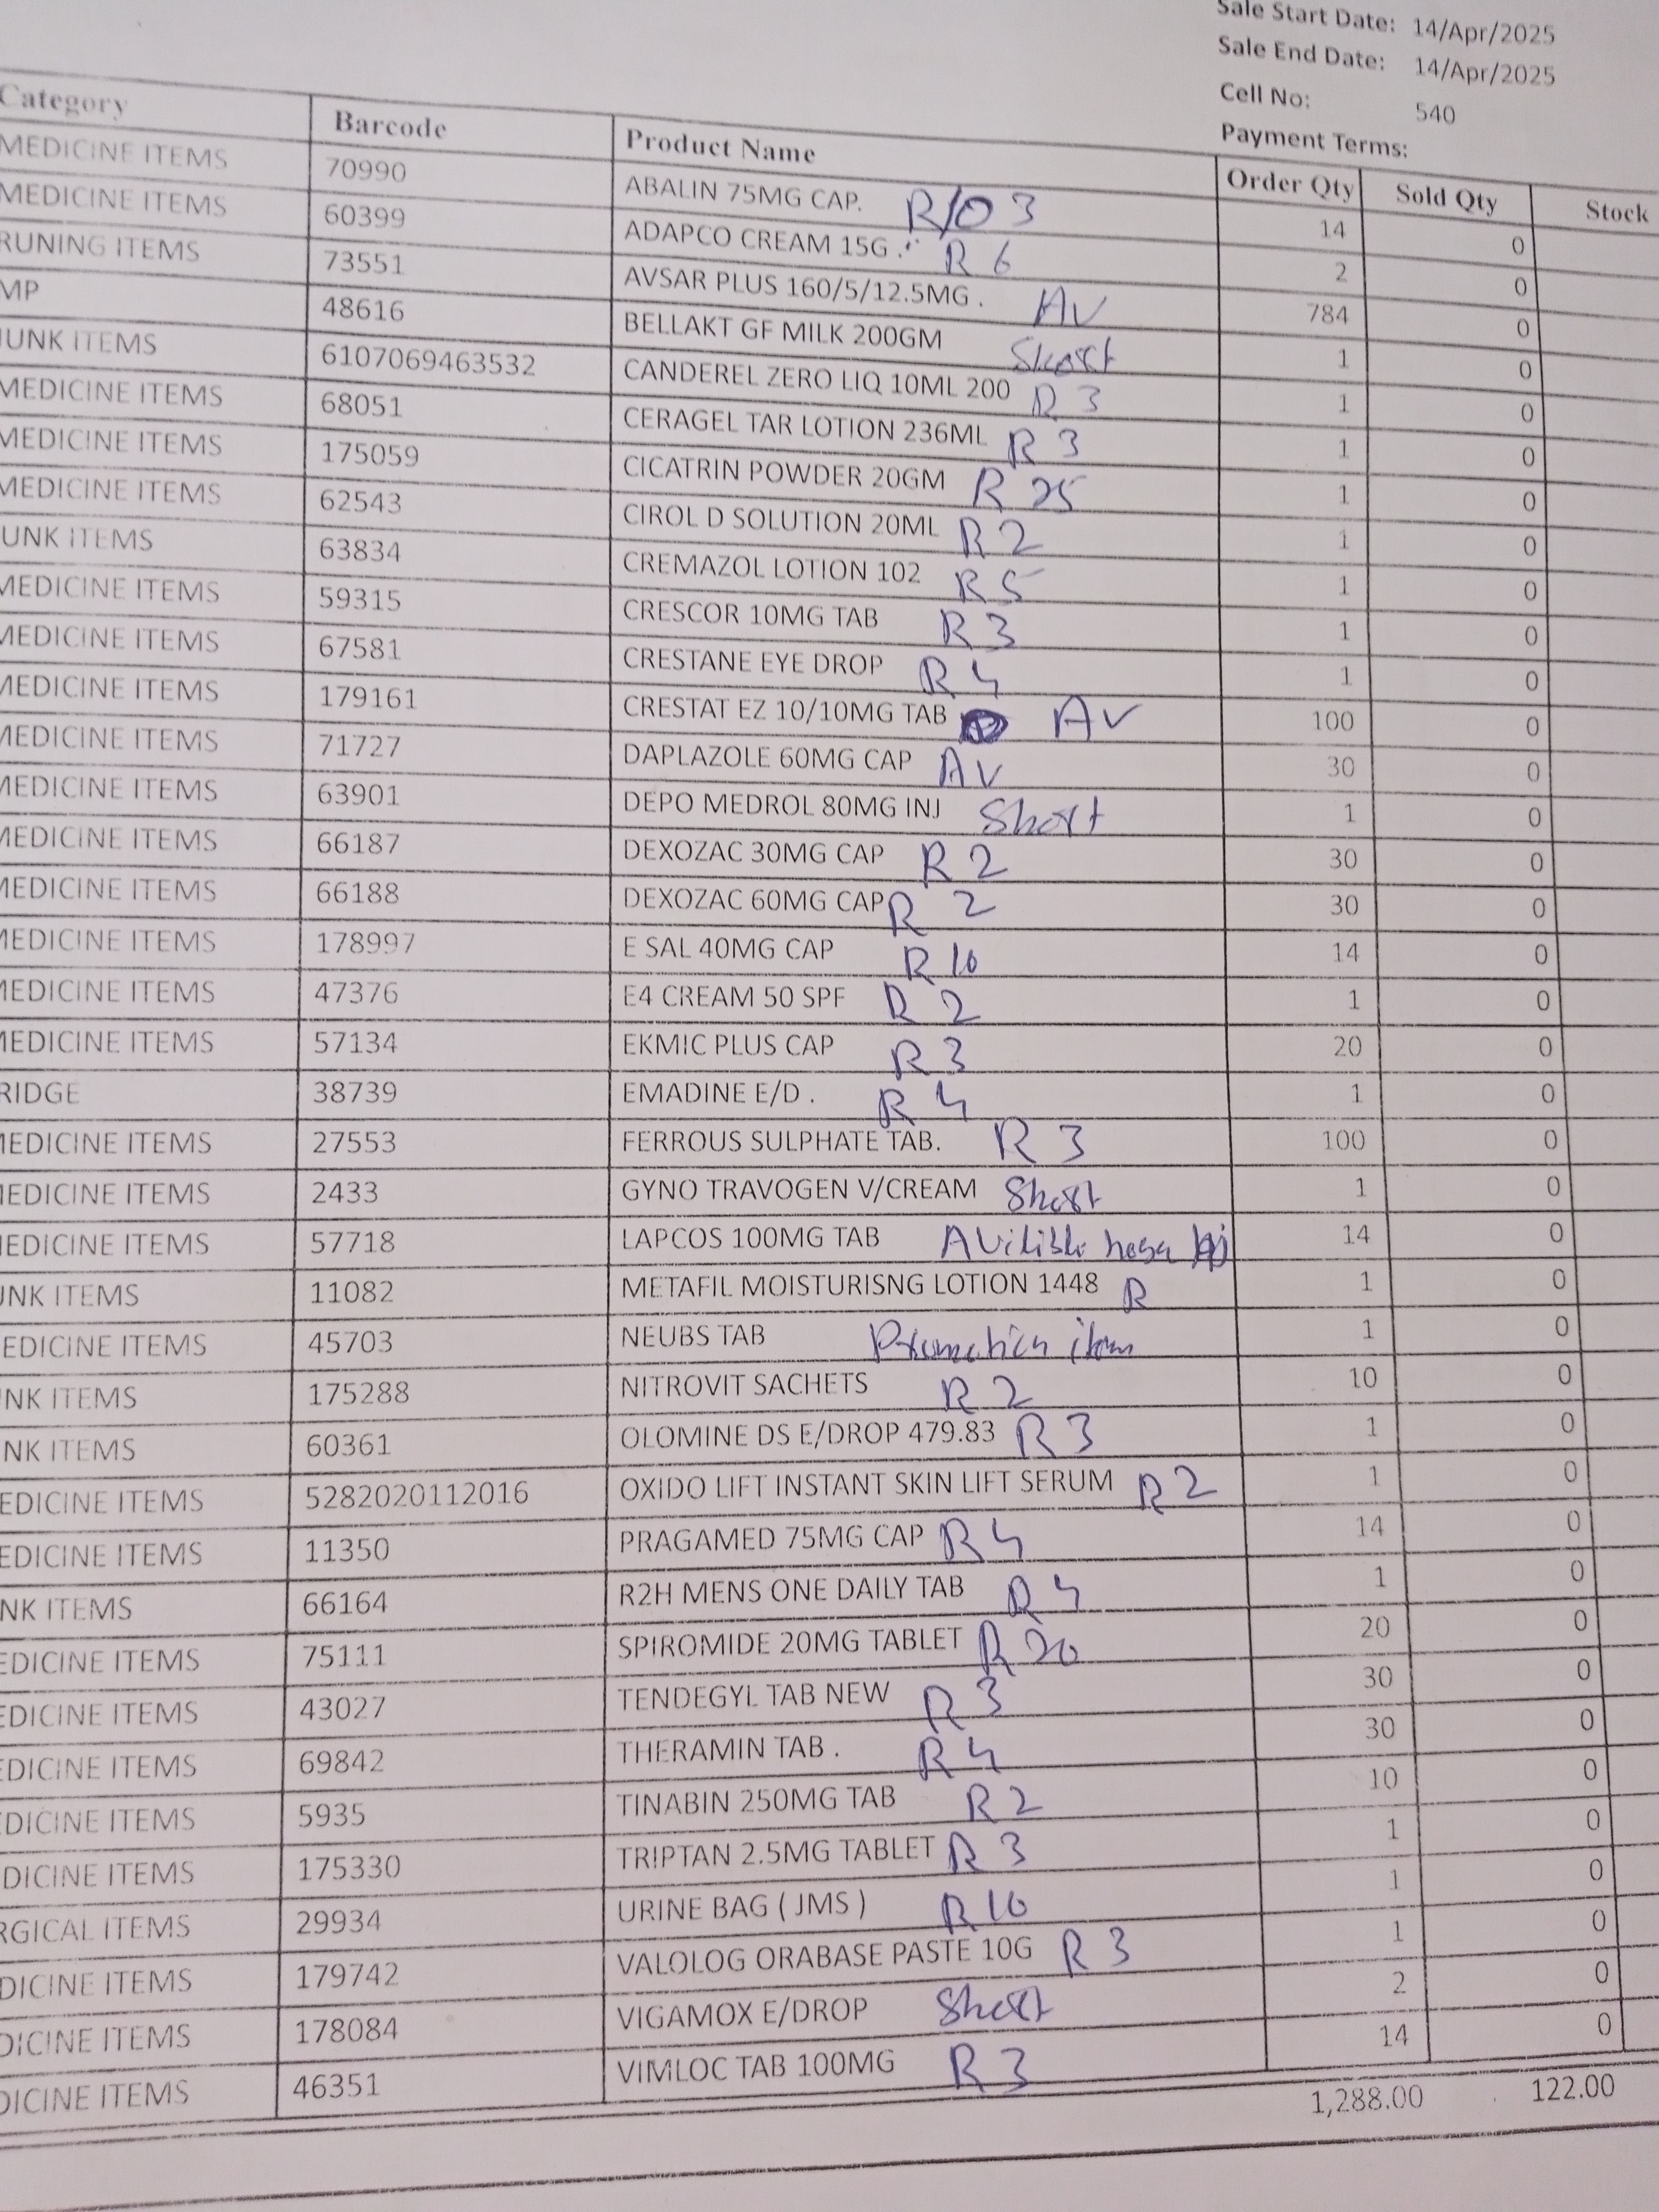 Sale Start Date: 14/Apr/2025
Sale End Date: 14/Apr/2025
Cell No: 540
Payment Terms:
Category Barcode Product Name Order Qty Sold Qty Stock
MEDICINE ITEMS 70990 ABALIN 75MG CAP. R/O 3 14 0
MEDICINE ITEMS 60399 ADAPCO CREAM 15G . R 6 2 0
RUNING ITEMS 73551 AVSAR PLUS 160/5/12.5MG . AV 784 0
MP 48616 BELLAKT GF MILK 200GM Short 1 0
UNK ITEMS 6107069463532 CANDEREL ZERO LIQ 10ML 200 R 3 1 0
MEDICINE ITEMS 68051 CERAGEL TAR LOTION 236ML R 3 1 0
MEDICINE ITEMS 175059 CICATRIN POWDER 20GM R 25 1 0
MEDICINE ITEMS 62543 CIROL D SOLUTION 20ML R 2 1 0
UNK ITEMS 63834 CREMAZOL LOTION 102 R 5 1 0
MEDICINE ITEMS 59315 CRESCOR 10MG TAB R 3 1 0
MEDICINE ITEMS 67581 CRESTANE EYE DROP R 4 1 0
MEDICINE ITEMS 179161 CRESTAT EZ 10/10MG TAB AV 100 0
MEDICINE ITEMS 71727 DAPLAZOLE 60MG CAP AV 30 0
MEDICINE ITEMS 63901 DEPO MEDROL 80MG INJ Short 1 0
MEDICINE ITEMS 66187 DEXOZAC 30MG CAP R 2 30 0
MEDICINE ITEMS 66188 DEXOZAC 60MG CAP R 2 30 0
MEDICINE ITEMS 178997 E SAL 40MG CAP R 10 14 0
MEDICINE ITEMS 47376 E4 CREAM 50 SPF R 2 1 0
MEDICINE ITEMS 57134 EKMIC PLUS CAP R 3 20 0
RIDGE 38739 EMADINE E/D . R 4 1 0
MEDICINE ITEMS 27553 FERROUS SULPHATE TAB. R 3 100 0
MEDICINE ITEMS 2433 GYNO TRAVOGEN V/CREAM Short 1 0
MEDICINE ITEMS 57718 LAPCOS 100MG TAB AVilible hoga 14 0
UNK ITEMS 11082 METAFIL MOISTURISNG LOTION 1448 R 1 0
EDICINE ITEMS 45703 NEUBS TAB Promotion item 1 0
NK ITEMS 175288 NITROVIT SACHETS R 2 10 0
NK ITEMS 60361 OLOMINE DS E/DROP 479.83 R 3 1 0
EDICINE ITEMS 5282020112016 OXIDO LIFT INSTANT SKIN LIFT SERUM R 2 1 0
EDICINE ITEMS 11350 PRAGAMED 75MG CAP R 4 14 0
NK ITEMS 66164 R2H MENS ONE DAILY TAB R 4 1 0
EDICINE ITEMS 75111 SPIROMIDE 20MG TABLET R 20 20 0
EDICINE ITEMS 43027 TENDEGYL TAB NEW R 3 30 0
EDICINE ITEMS 69842 THERAMIN TAB . R 4 30 0
DICINE ITEMS 5935 TINABIN 250MG TAB R 2 10 0
DICINE ITEMS 175330 TRIPTAN 2.5MG TABLET R 3 1 0
RGICAL ITEMS 29934 URINE BAG ( JMS ) R 10 1 0
DICINE ITEMS 179742 VALOLOG ORABASE PASTE 10G R 3 1 0
DICINE ITEMS 178084 VIGAMOX E/DROP Short 2 0
DICINE ITEMS 46351 VIMLOC TAB 100MG R 3 14 0
1,288.00 122.00